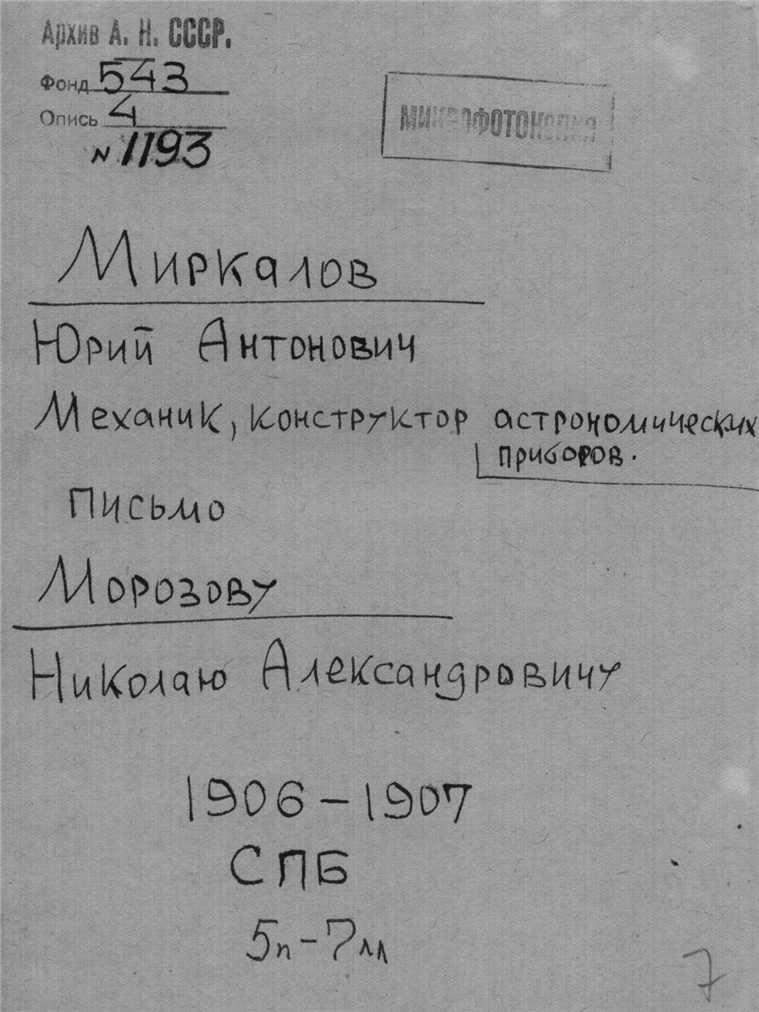 Архив А. Н. СССР.
Фонд 543
Опись 4
N 1193
МИКРОФОТОКОПИЯ
Миркалов
Юрий Антонович
Механик, конструктор астрономических
приборов.
Письмо
Морозову
Николаю Александровичу
1906-1907
СПБ
5п-7лл
7